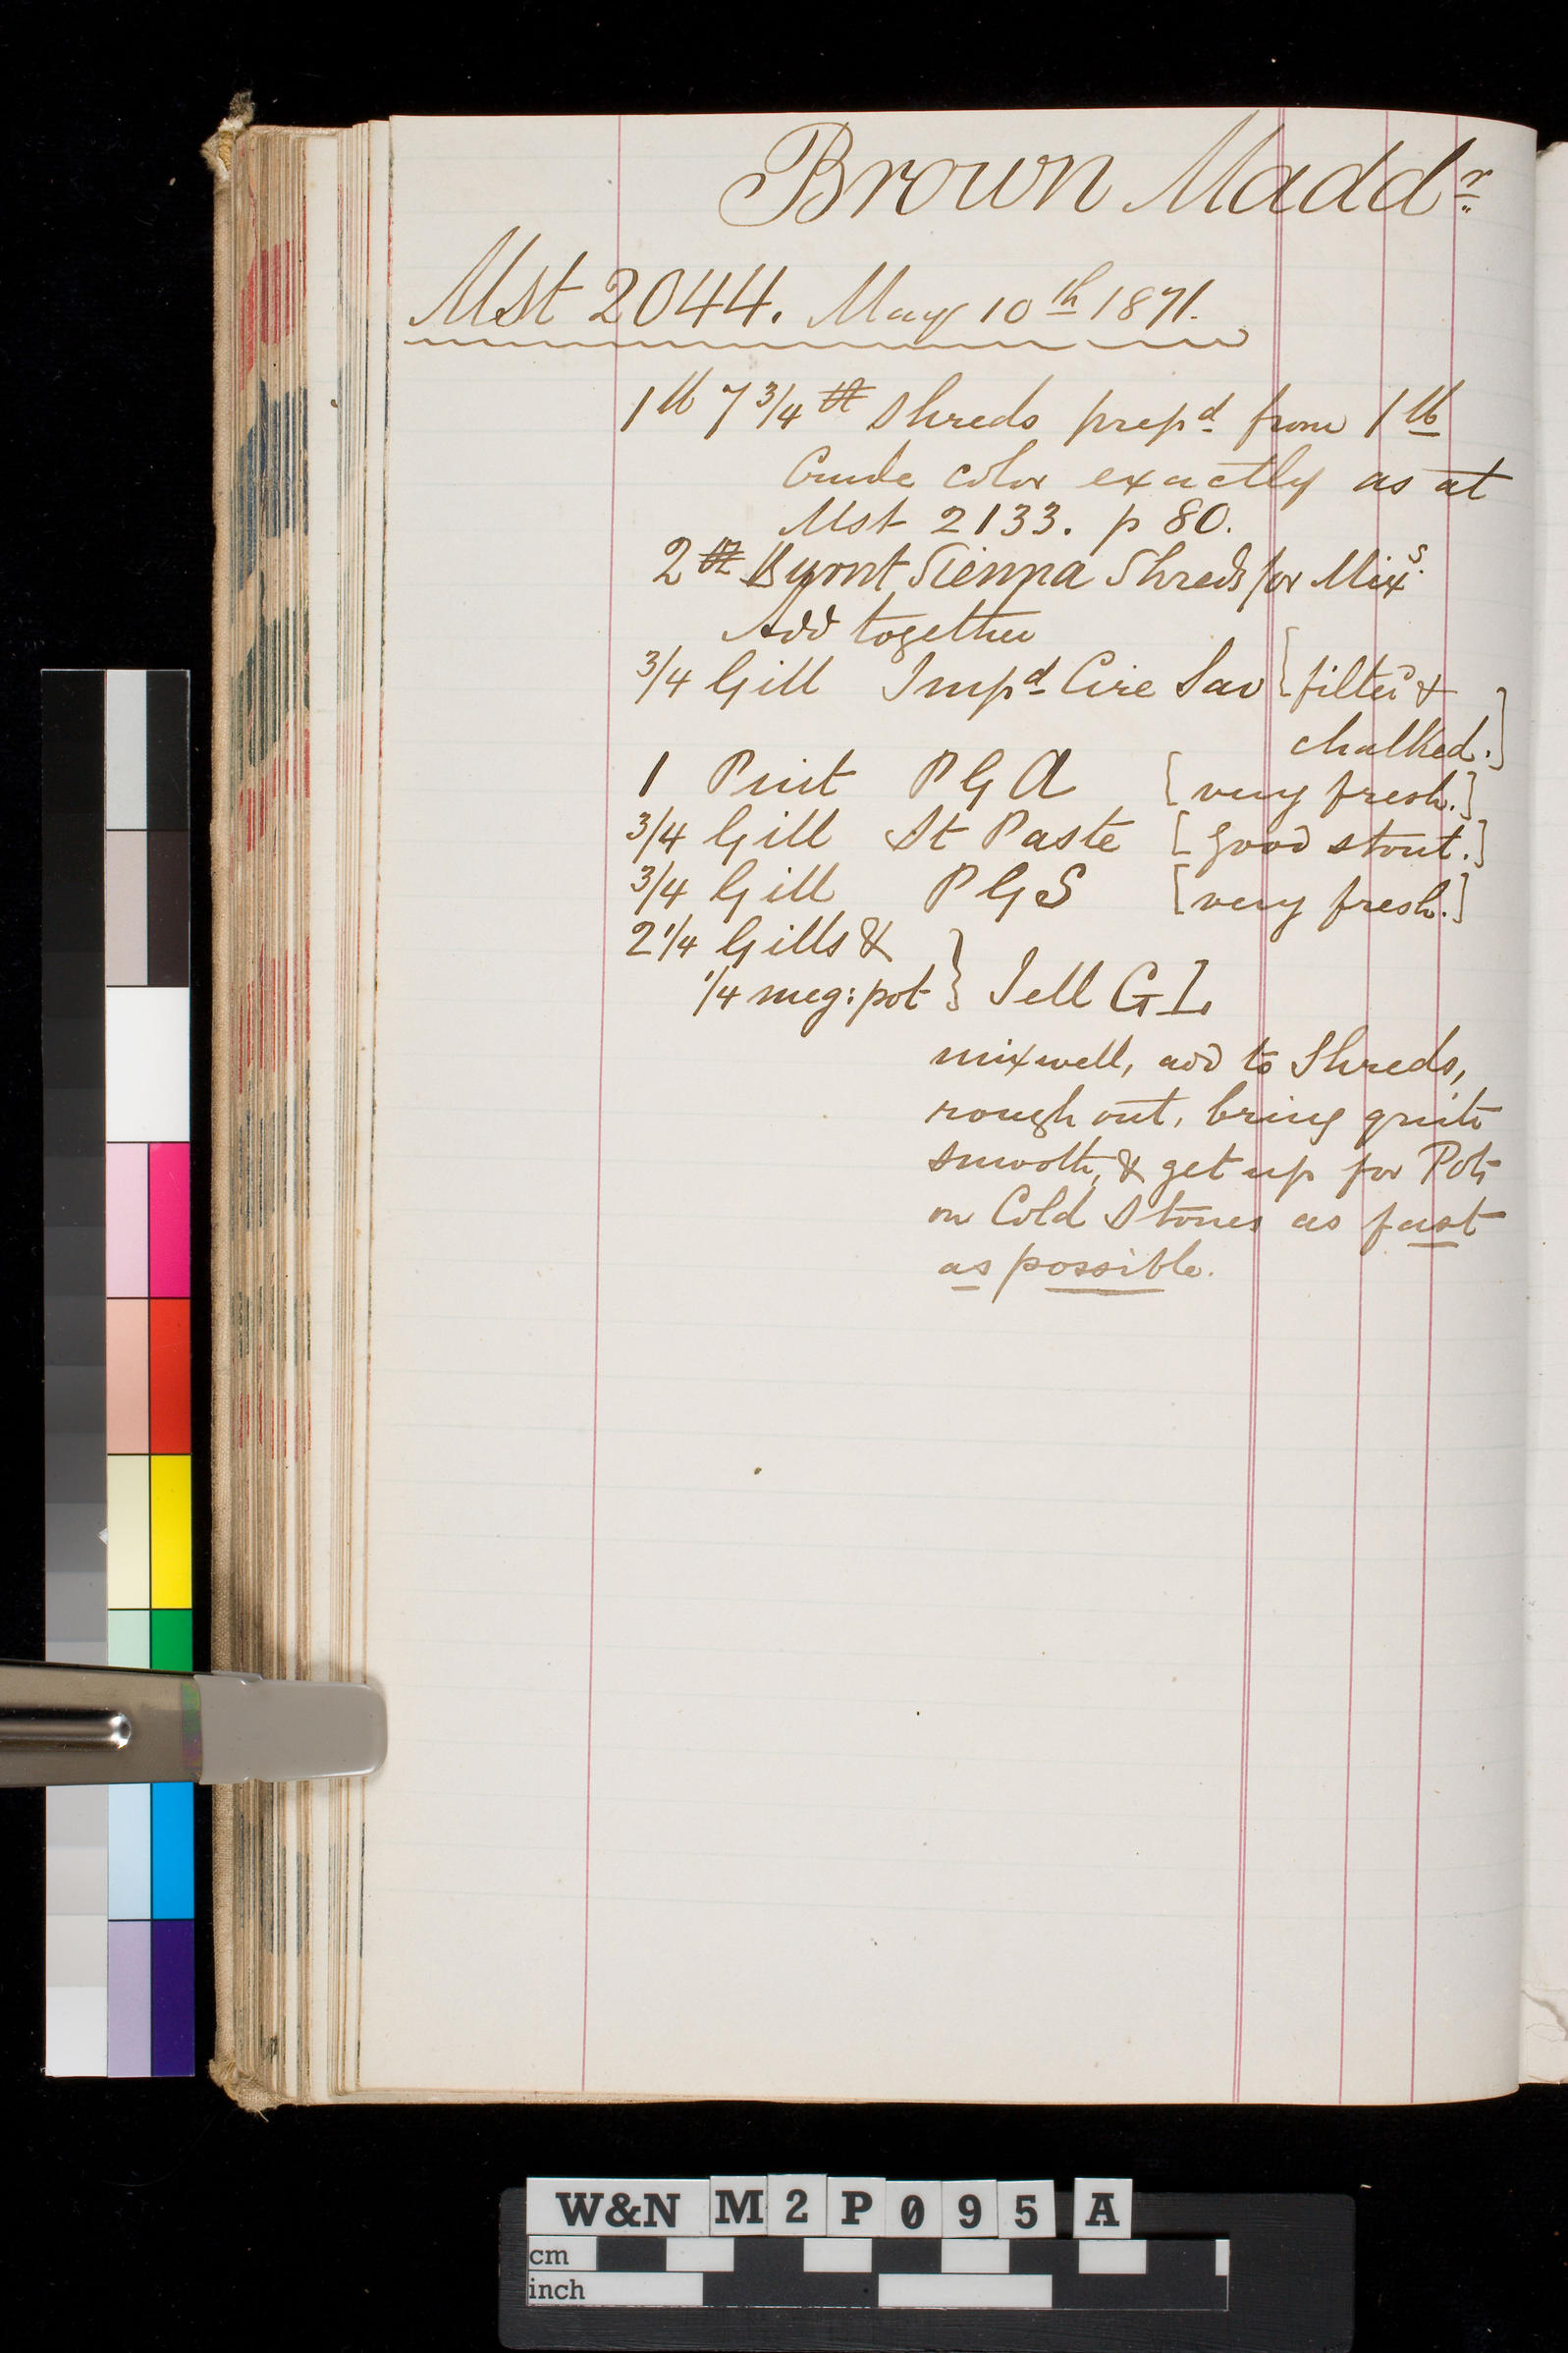 Brown Madd<sup>r</sup>
Mst 2044. May 10<sup>th</sup> 1871.
1 lb 7 3/4 ℥ Shreds prep<sup>d</sup> from 1 lb
Crude color exactly as at
Mst 2133. p 80.
2 ℥ Burnt Sienna Shreds for Mix<sup>s</sup>.
Add together
3/4 Gill Imp<sup>d</sup> Cire Sav [filter<sup>d</sup> &
chalked.]
1 Pint PGA [very fresh.]
3/4 Gill St Paste [good stout.]
3/4 Gill PGS [very fresh.]
2 1/4 Gills &
1/4 meg: pot } Jell GL
mix well, add to Shreds,
rough out, bring quite
smooth, & get up for Pots
on Cold Stones as fast
as possible.
W&N M2P095 A
cm
inch